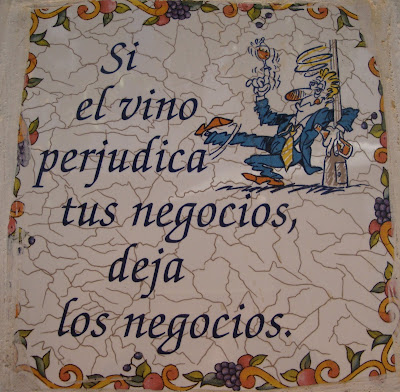 Si
el vino
perjudica
tus negocios,
deja
los negocios.